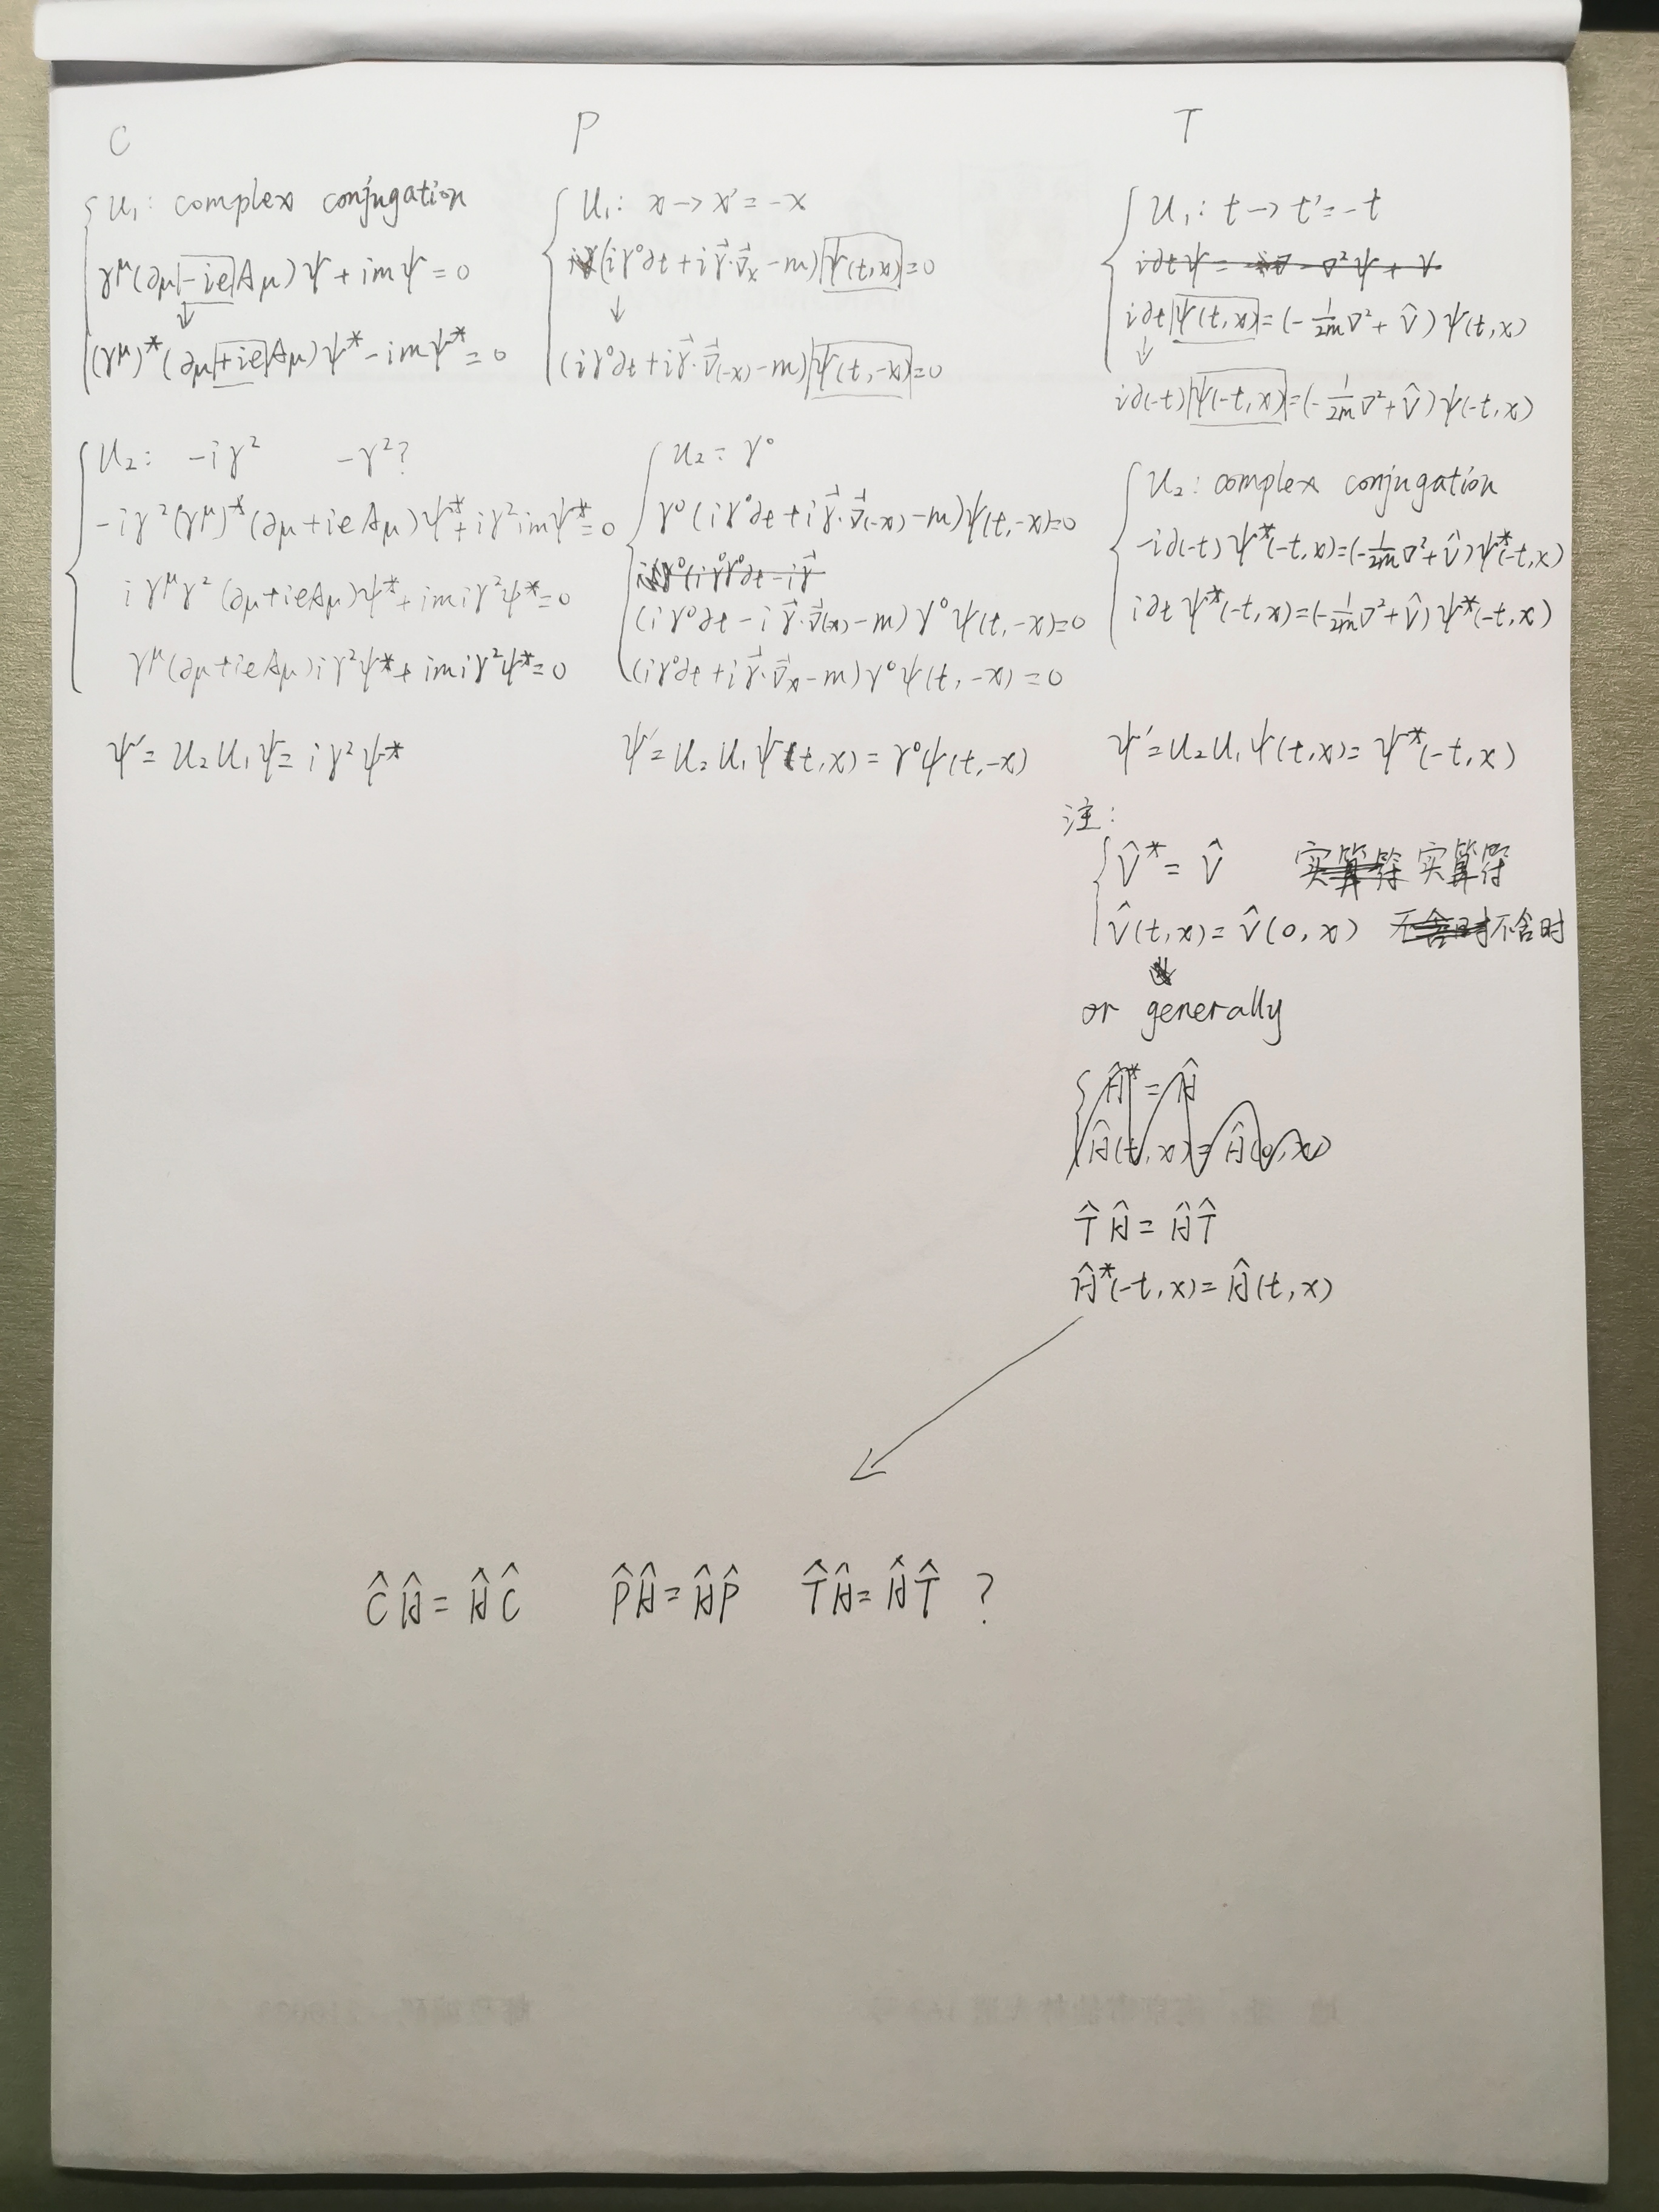 C
U₁: complex conjugation
γ^μ(∂μ-ieAμ)ψ+imψ=0
↓
(γ^μ)*(∂μ+ieAμ)ψ*-imψ*=0
U₂: -iγ² -γ²?
-iγ²(γ^μ)*(∂μ+ieAμ)ψ*+iγ²imψ*=0
iγ^μγ²(∂μ+ieAμ)ψ*+imiγ²ψ*=0
γ^μ(∂μ+ieAμ)iγ²ψ*+imiγ²ψ*=0
ψ'=U₂U₁ψ=iγ²ψ*
P
U₁: x→x'=-x
(iγ⁰∂t+iγ⃗·∇⃗ₓ-m)ψ(t,x)=0
↓
(iγ⁰∂t+iγ⃗·∇⃗(-x)-m)ψ(t,-x)=0
U₂=γ⁰
γ⁰(iγ⁰∂t+iγ⃗·∇⃗(-x)-m)ψ(t,-x)=0
(iγ⁰∂t-iγ⃗·∇⃗(-x)-m)γ⁰ψ(t,-x)=0
(iγ⁰∂t+iγ⃗·∇⃗ₓ-m)γ⁰ψ(t,-x)=0
ψ'=U₂U₁ψ(t,x)=γ⁰ψ(t,-x)
T
U₁: t→t'=-t
i∂tψ= -∇²ψ+V
i∂tψ(t,x)=(-1/2m ∇²+V̂)ψ(t,x)
↓
i∂(-t)ψ(-t,x)=(-1/2m ∇²+V̂)ψ(-t,x)
U₂: complex conjugation
-i∂(-t)ψ*(-t,x)=(-1/2m ∇²+V̂)ψ*(-t,x)
i∂tψ*(-t,x)=(-1/2m ∇²+V̂)ψ*(-t,x)
ψ'=U₂U₁ψ(t,x)=ψ*(-t,x)
注:
V̂*=V̂ 实算符 实算符
V̂(t,x)=V̂(0,x) 无含时 不含时
or generally
Ĥ*=Ĥ
Ĥ(t,x)=Ĥ(0,x)
T̂Ĥ=ĤT̂
Ĥ*(-t,x)=Ĥ(t,x)
ĈĤ=ĤĈ P̂Ĥ=ĤP̂ T̂Ĥ=ĤT̂ ?